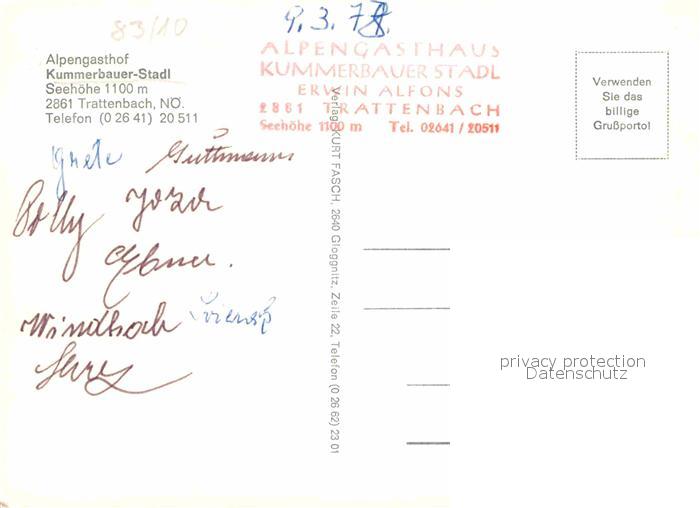 83/10
9.3.78.
Alpengasthof
Kummerbauer-Stadl
Seehöhe 1100 m
2861 Trattenbach, NÖ.
Telefon (0 26 41) 20 511
ALPENGASTHAUS
KUMMERBAUER STADL
ERWIN ALFONS
2881 TRATTENBACH
Seehöhe 1100 m Tel. 02641 / 20511
Verwenden
Sie das
billige
Grußporto!
Grete Guttmann
Polly
Ebner.
Windhach
Verlag KURT FASCH, 2640 Gloggnitz, Zeile 22, Telefon (0 26 62) 23 01
privacy protection
Datenschutz